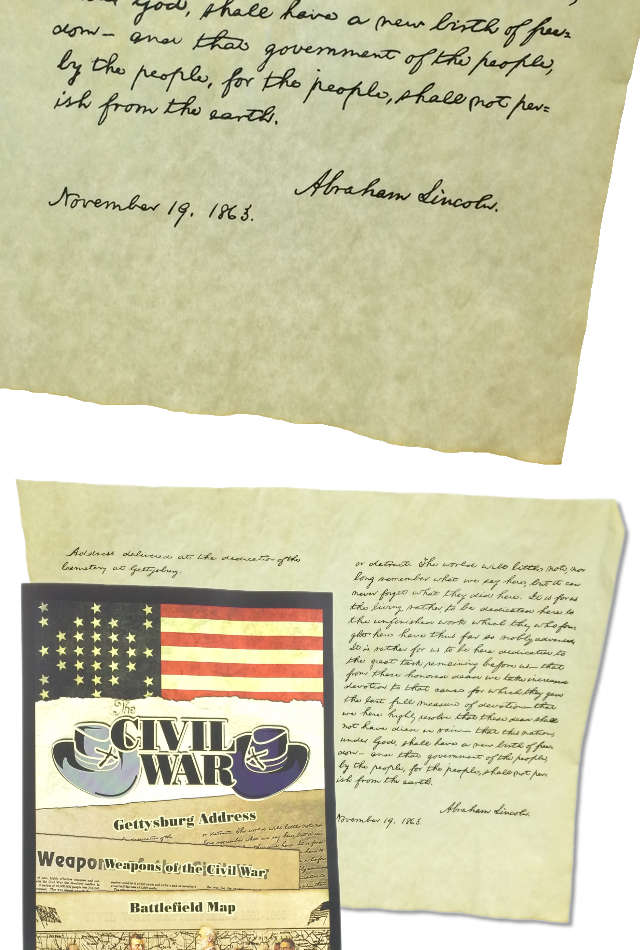 God, shall have a new birth of free=
dom— and that government of the people,
by the people, for the people, shall not per=
ish from the earth.
Abraham Lincoln.
November 19, 1863.
Address delivered at the dedication of the
Cemetery at Gettysburg.
or detract. The world will little note, nor
long remember what we say here, but it can
never forget what they did here. It is for us
the living, rather to be dedicated here to
the unfinished work which they who fou-
ght here have thus far so nobly advanced.
It is rather for us to be here dedicated to
the great task remaining before us— that
from these honored dead we take increased
devotion to that cause for which they gave
the last full measure of devotion— that
we here highly resolve that these dead shall
not have died in vain— that this nation,
under God, shall have a new birth of free=
dom— and that government of the people,
by the people, for the people, shall not per=
ish from the earth.
Abraham Lincoln.
November 19, 1863.
The
CIVIL
WAR
Gettysburg Address
Weapons of the Civil War
Battlefield Map